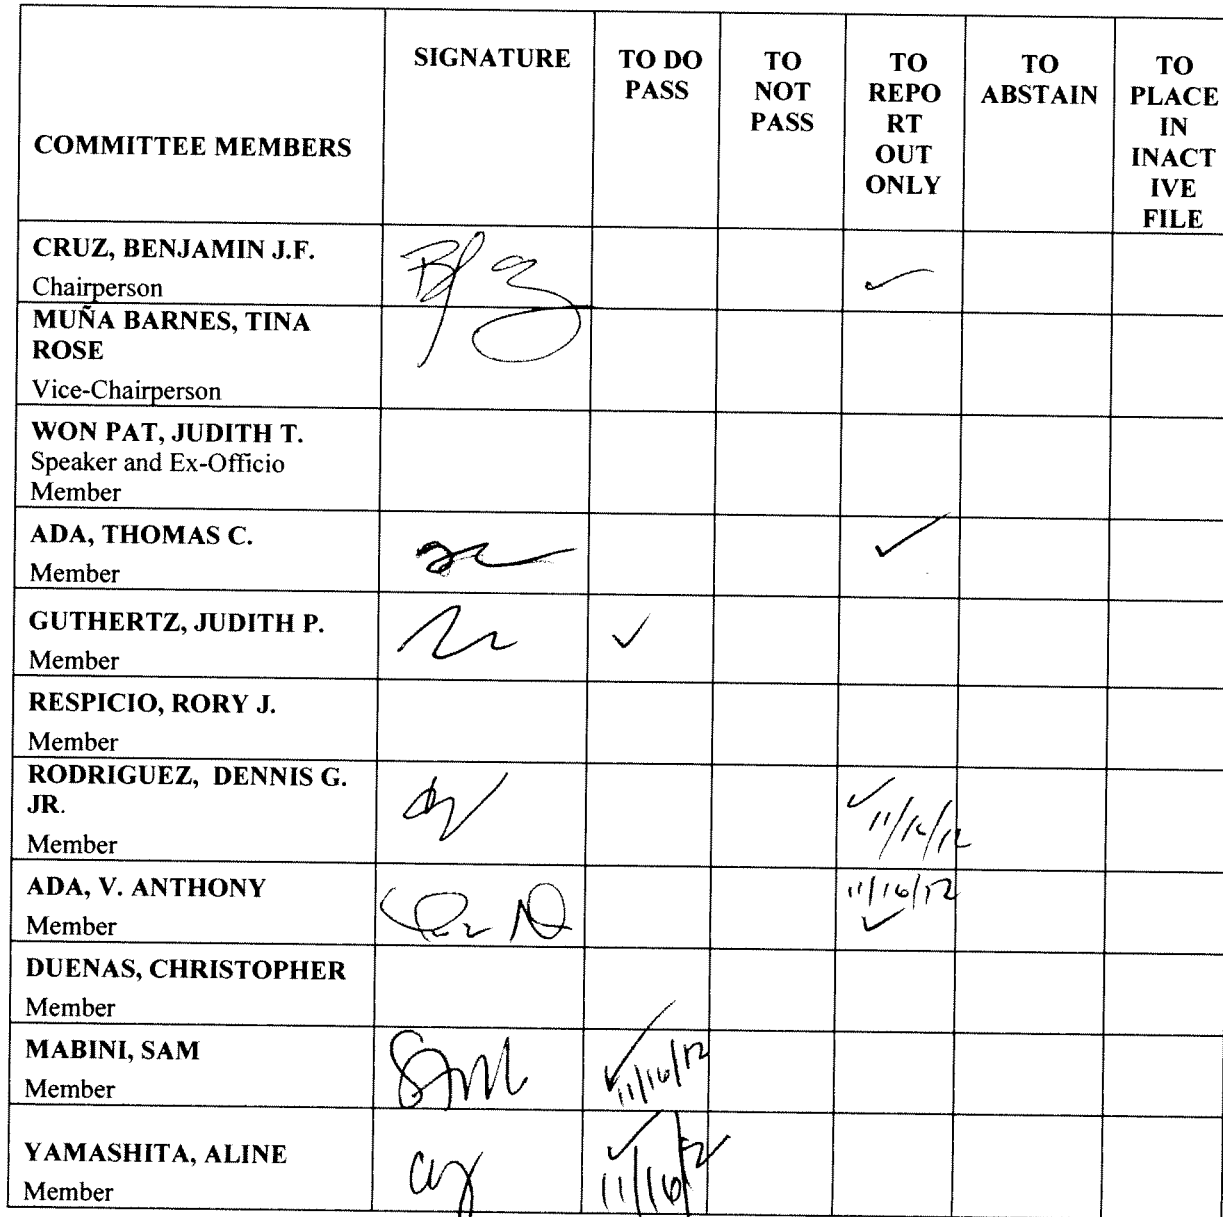 COMMITTEE MEMBERS
SIGNATURE
TO DO
PASS
TO
NOT
PASS
TO
REPO
RT
OUT
ONLY
TO
ABSTAIN
TO
PLACE
IN
INACT
IVE
FILE
CRUZ, BENJAMIN J.F.
Chairperson
MUÑA BARNES, TINA
ROSE
Vice-Chairperson
WON PAT, JUDITH T.
Speaker and Ex-Officio
Member
ADA, THOMAS C.
Member
GUTHERTZ, JUDITH P.
Member
RESPICIO, RORY J.
Member
RODRIGUEZ, DENNIS G.
JR.
Member
ADA, V. ANTHONY
Member
11/16/12
DUENAS, CHRISTOPHER
Member
MABINI, SAM
Member
11/16/12
YAMASHITA, ALINE
Member
11/16/12